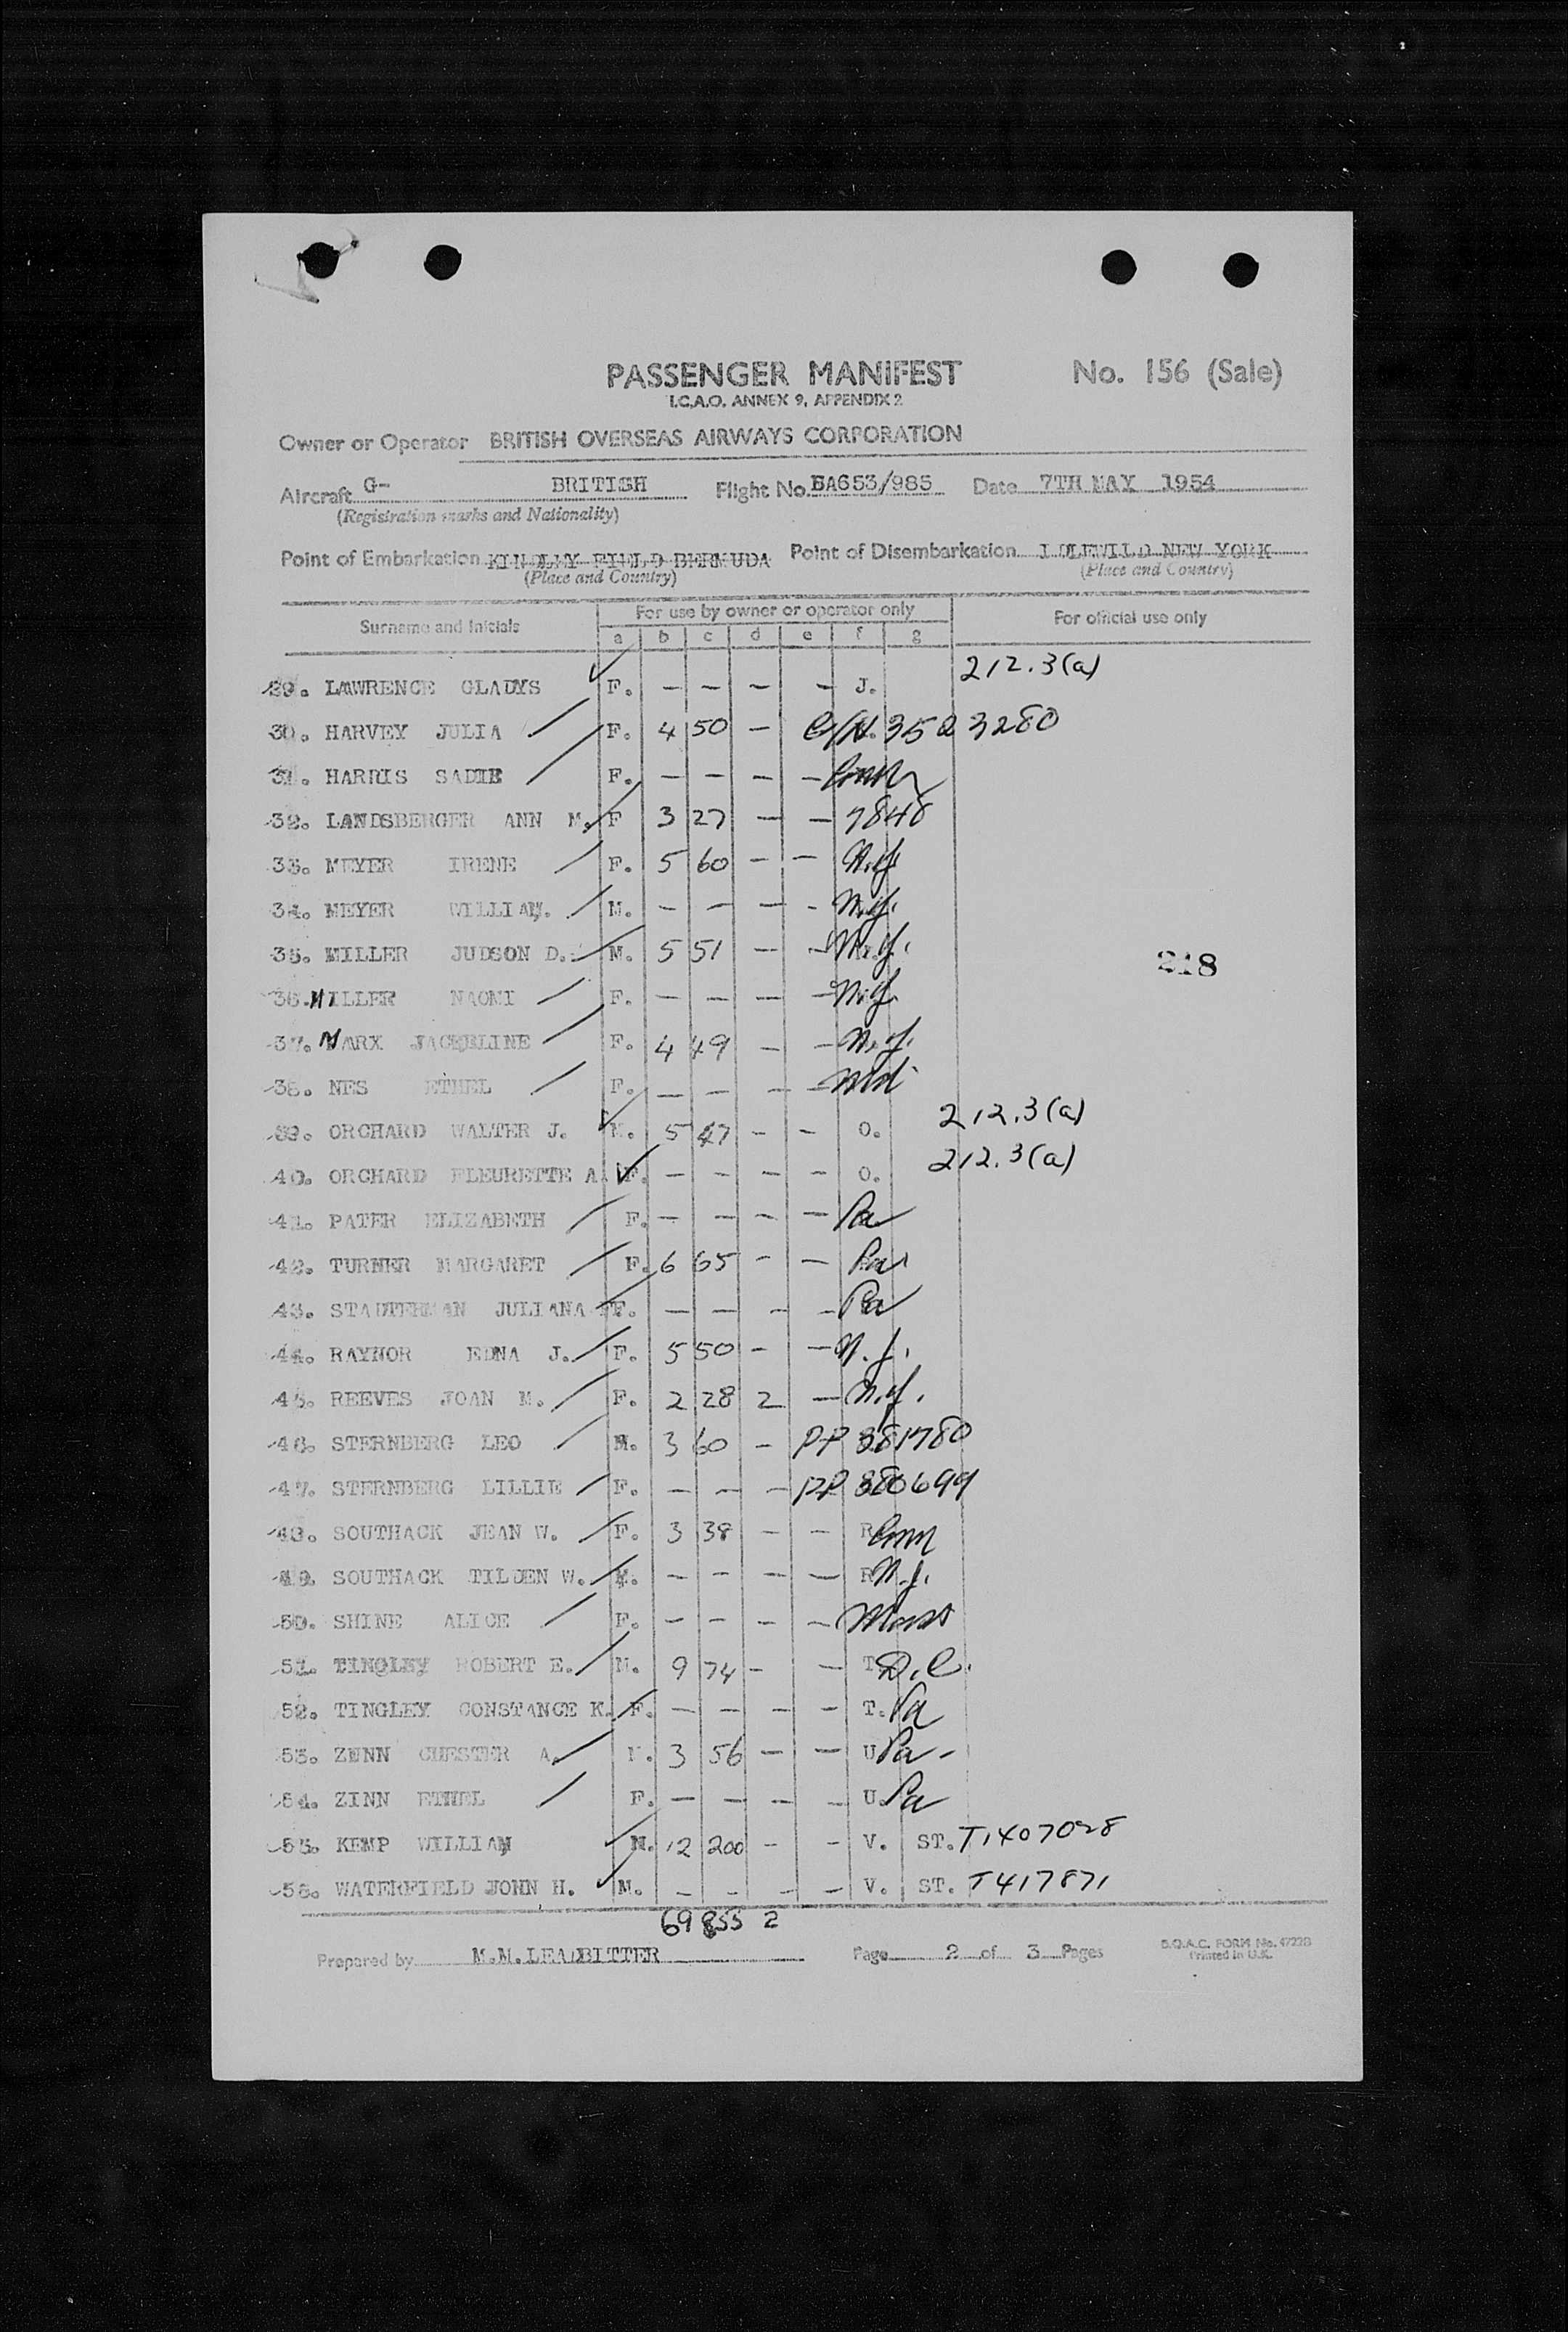 PASSENGER MANIFEST No. 156 (Sale)
I.C.A.O. ANNEX 9, APPENDIX 2
Owner or Operator BRITISH OVERSEAS AIRWAYS CORPORATION
Aircraft G- BRITISH Flight No. BA653/985 Date 7TH MAY 1954
(Registration marks and Nationality)
Point of Embarkation KINDLEY FIELD BERMUDA Point of Disembarkation IDLEWILD NEW YORK
(Place and Country) (Place and Country)
Surname and Initials For use by owner or operator only For official use only
a b c d e f g
29. LAWRENCE GLADYS F. — — — — J. 212.3(a)
30. HARVEY JULIA F. 4 50 — C/N. 352 3280
31. HARRIS SADIE F. — — — — Conn
32. LANDSBERGER ANN M. F 3 27 — — 7848
33. MEYER IRENE F. 5 60 — — N.Y.
34. MEYER WILLIAM. M. — — — - N.Y.
35. MILLER JUDSON D. M. 5 51 — — N.Y.
36. MILLER NAOMI F. — — — — N.Y.
37. MARX JACQELINE F. 4 49 — — N.Y.
38. NES ETHEL F. — — — — Md
39. ORCHARD WALTER J. M. 5 47 - — O. 212.3(a)
40. ORCHARD FLEURETTE A. F. — — — — O. 212.3(a)
41. PATER ELIZABETH F. — — — — Pa
42. TURNER MARGARET F. 6 65 - — Pa
43. STADTERMAN JULIANA F. — — — — Pa
44. RAYNOR EDNA J. F. 5 50 - — N.J.
45. REEVES JOAN M. F. 2 28 2 — N.Y.
46. STERNBERG LEO M. 3 60 — PP 381780
47. STERNBERG LILLIE F. — — — PP 380699
48. SOUTHACK JEAN W. F. 3 38 — — R Conn
49. SOUTHACK TILDEN W. M. — — — — R N.J.
50. SHINE ALICE F. — — — — Mass
51. TINGLEY ROBERT E. M. 9 74 - — T D.C.
52. TINGLEY CONSTANCE K. F. — — — — T. Pa
53. ZENN CHESTER A. M. 3 56 — — U Pa -
54. ZINN ETHEL F. — — — — U. Pa
55. KEMP WILLIAM M. 12 200 - - V. ST. T1407028
56. WATERFIELD JOHN H. M. — - — — V. ST. T417871
218
69 855 2
Prepared by M.M.LEADBITTER Page 2 of 3 Pages
B.O.A.C. FORM No. 4722B
Printed in U.K.